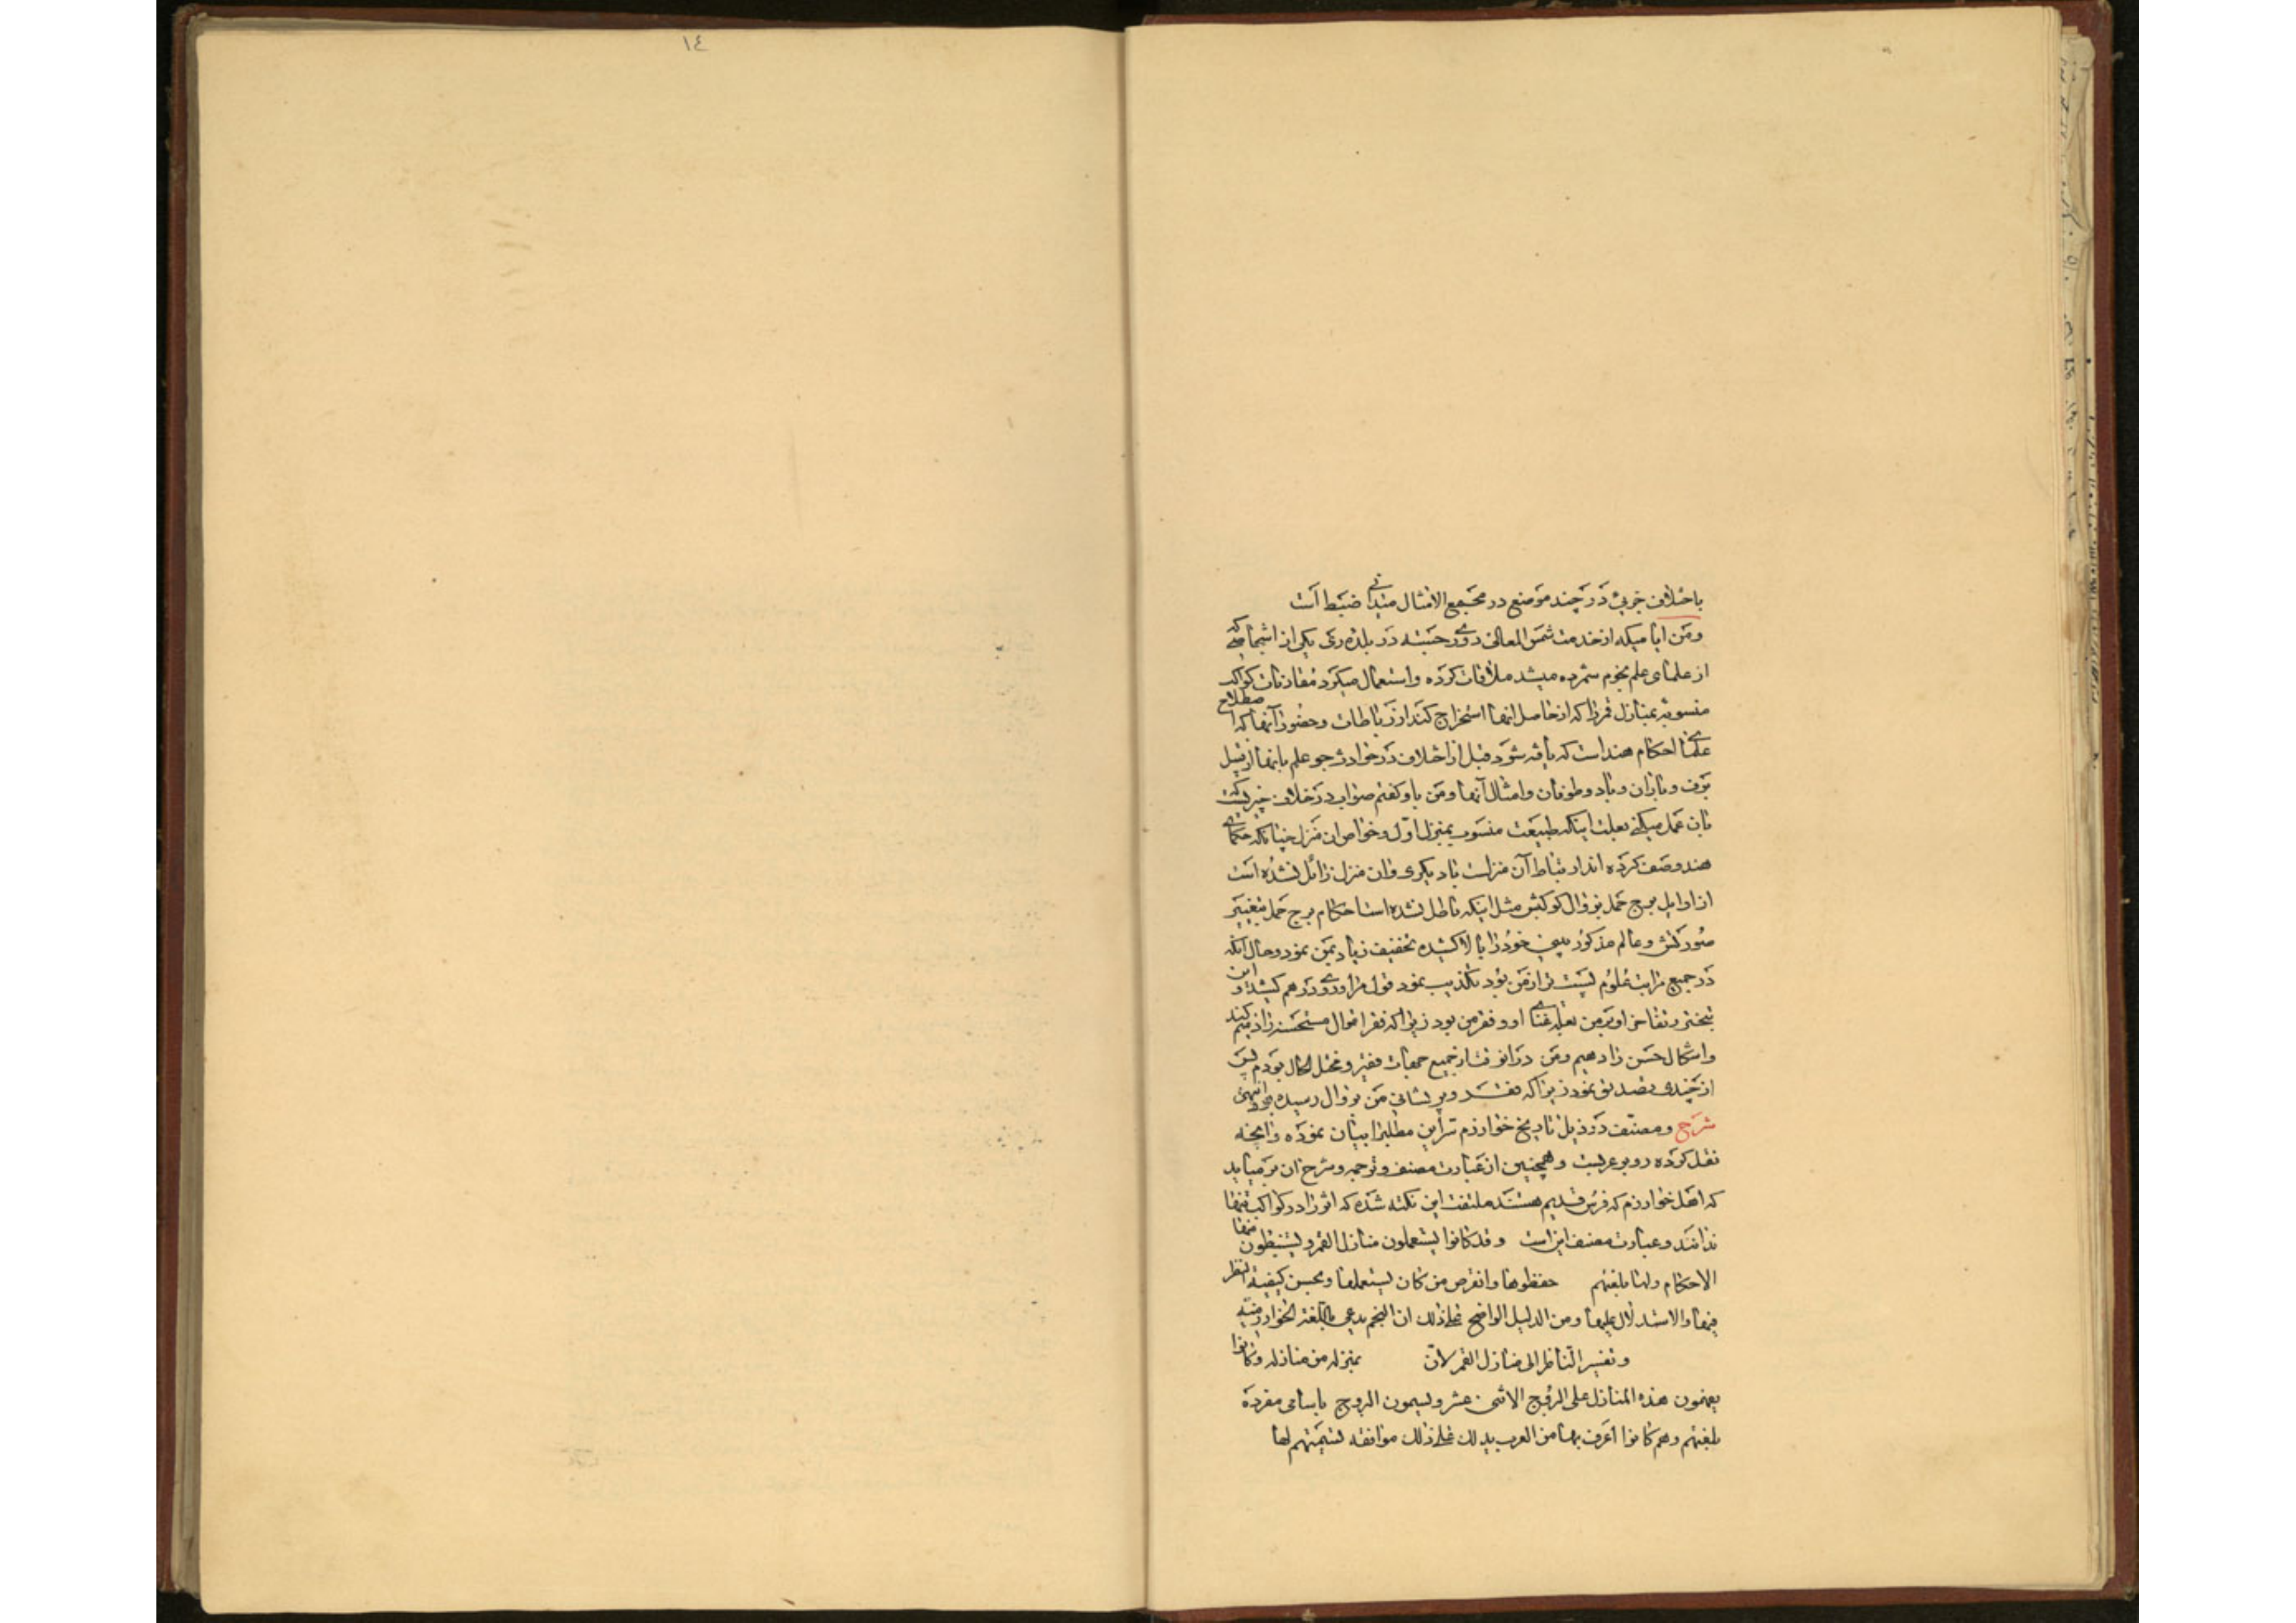 ١٤
باختلاف جزئی در چند موضع در مجمع الامثال میدانی ضبط است
ومن ایامیکه از خدمت شمس المعالی دوری جسته در بلده ری یکی از اشخاصی که
از علمای علم نجوم شمرده میشد ملاقات کرده واستعمال میکرد مقارنات کواکب
منسوبه بمنازل قمر را که از حاصل انها استخراج کند از رباطات وحضور آنها که اصطلاح
علمای احکام هند است که یافته شود قبل از اختلاف در حوادث جو علم بانها از قبیل
برف وباران وباد وطوفان وامثال آنها ومن باو گفتم صواب در خلاف چیزیست که
بان عمل میکنی بعلت اینکه طبیعت منسوب بمنزل اول وخواص ان منزل چنانکه حکمای
هند وصف کرده اند ارتباط آن منزلست با دیگری وان منزل زائل نشده است
از اوایل برج حمل بزوال کوکبش مثل اینکه باطل نشده است احکام برج حمل بتغییر
صورتش وعالم مذکور بینی خود را بالا کشیده تخفیف زیاد بمن نمود وحال آنکه
در جمیع مراتب علوم پست تر از من بود تکذیب نمود قول مرا وروی در هم کشید و این
تبختر وتفاخر او بر من بعلت غنای او وفقر من بود زیرا که فقر اقوال مستحسنه را ذمیم کند
واشکال حسن را دمیم ومن در انوقت از جمیع جهات فقیر ومختل الحال بودم پس
از چندی تصدیق نمود زیرا که فقر وپریشانی من بزوال رسیده بود انتهی
شرح ومصنف در ذیل تاریخ خوارزم نیز این مطلب را بیان نموده وانچه
نقل کرده روبر عربیست وهمچنین از عبارت مصنف وترجمه وشرح ان بر میاید
که اهل خوارزم که فرس قدیم هستند ملتفت این نکته شده که اثر را در کواکب منها
ندانند وعبارت مصنف این است وقد کانوا یستعملون منازل القمر ویستنبطون منها
الاحکام ولها بلغتهم حفظوها وانقرض من کان یستعملها ویحسن کیفیة النظر
فیها والاستدلال علیها ومن الدلیل الواضح علی ذلک ان المنجم یدعی باللغة الخوارزمیه
وتفسیر الناظر الی منازل القمر لان بمنزله من منازله وکانوا
یقسمون هذه المنازل علی البروج الاثنی عشر ویسمون البروج باسامی مفرده
بلغتهم وهم کانوا اعرف بها من العرب یدلک علی ذلک موافقه تسمیتهم لها